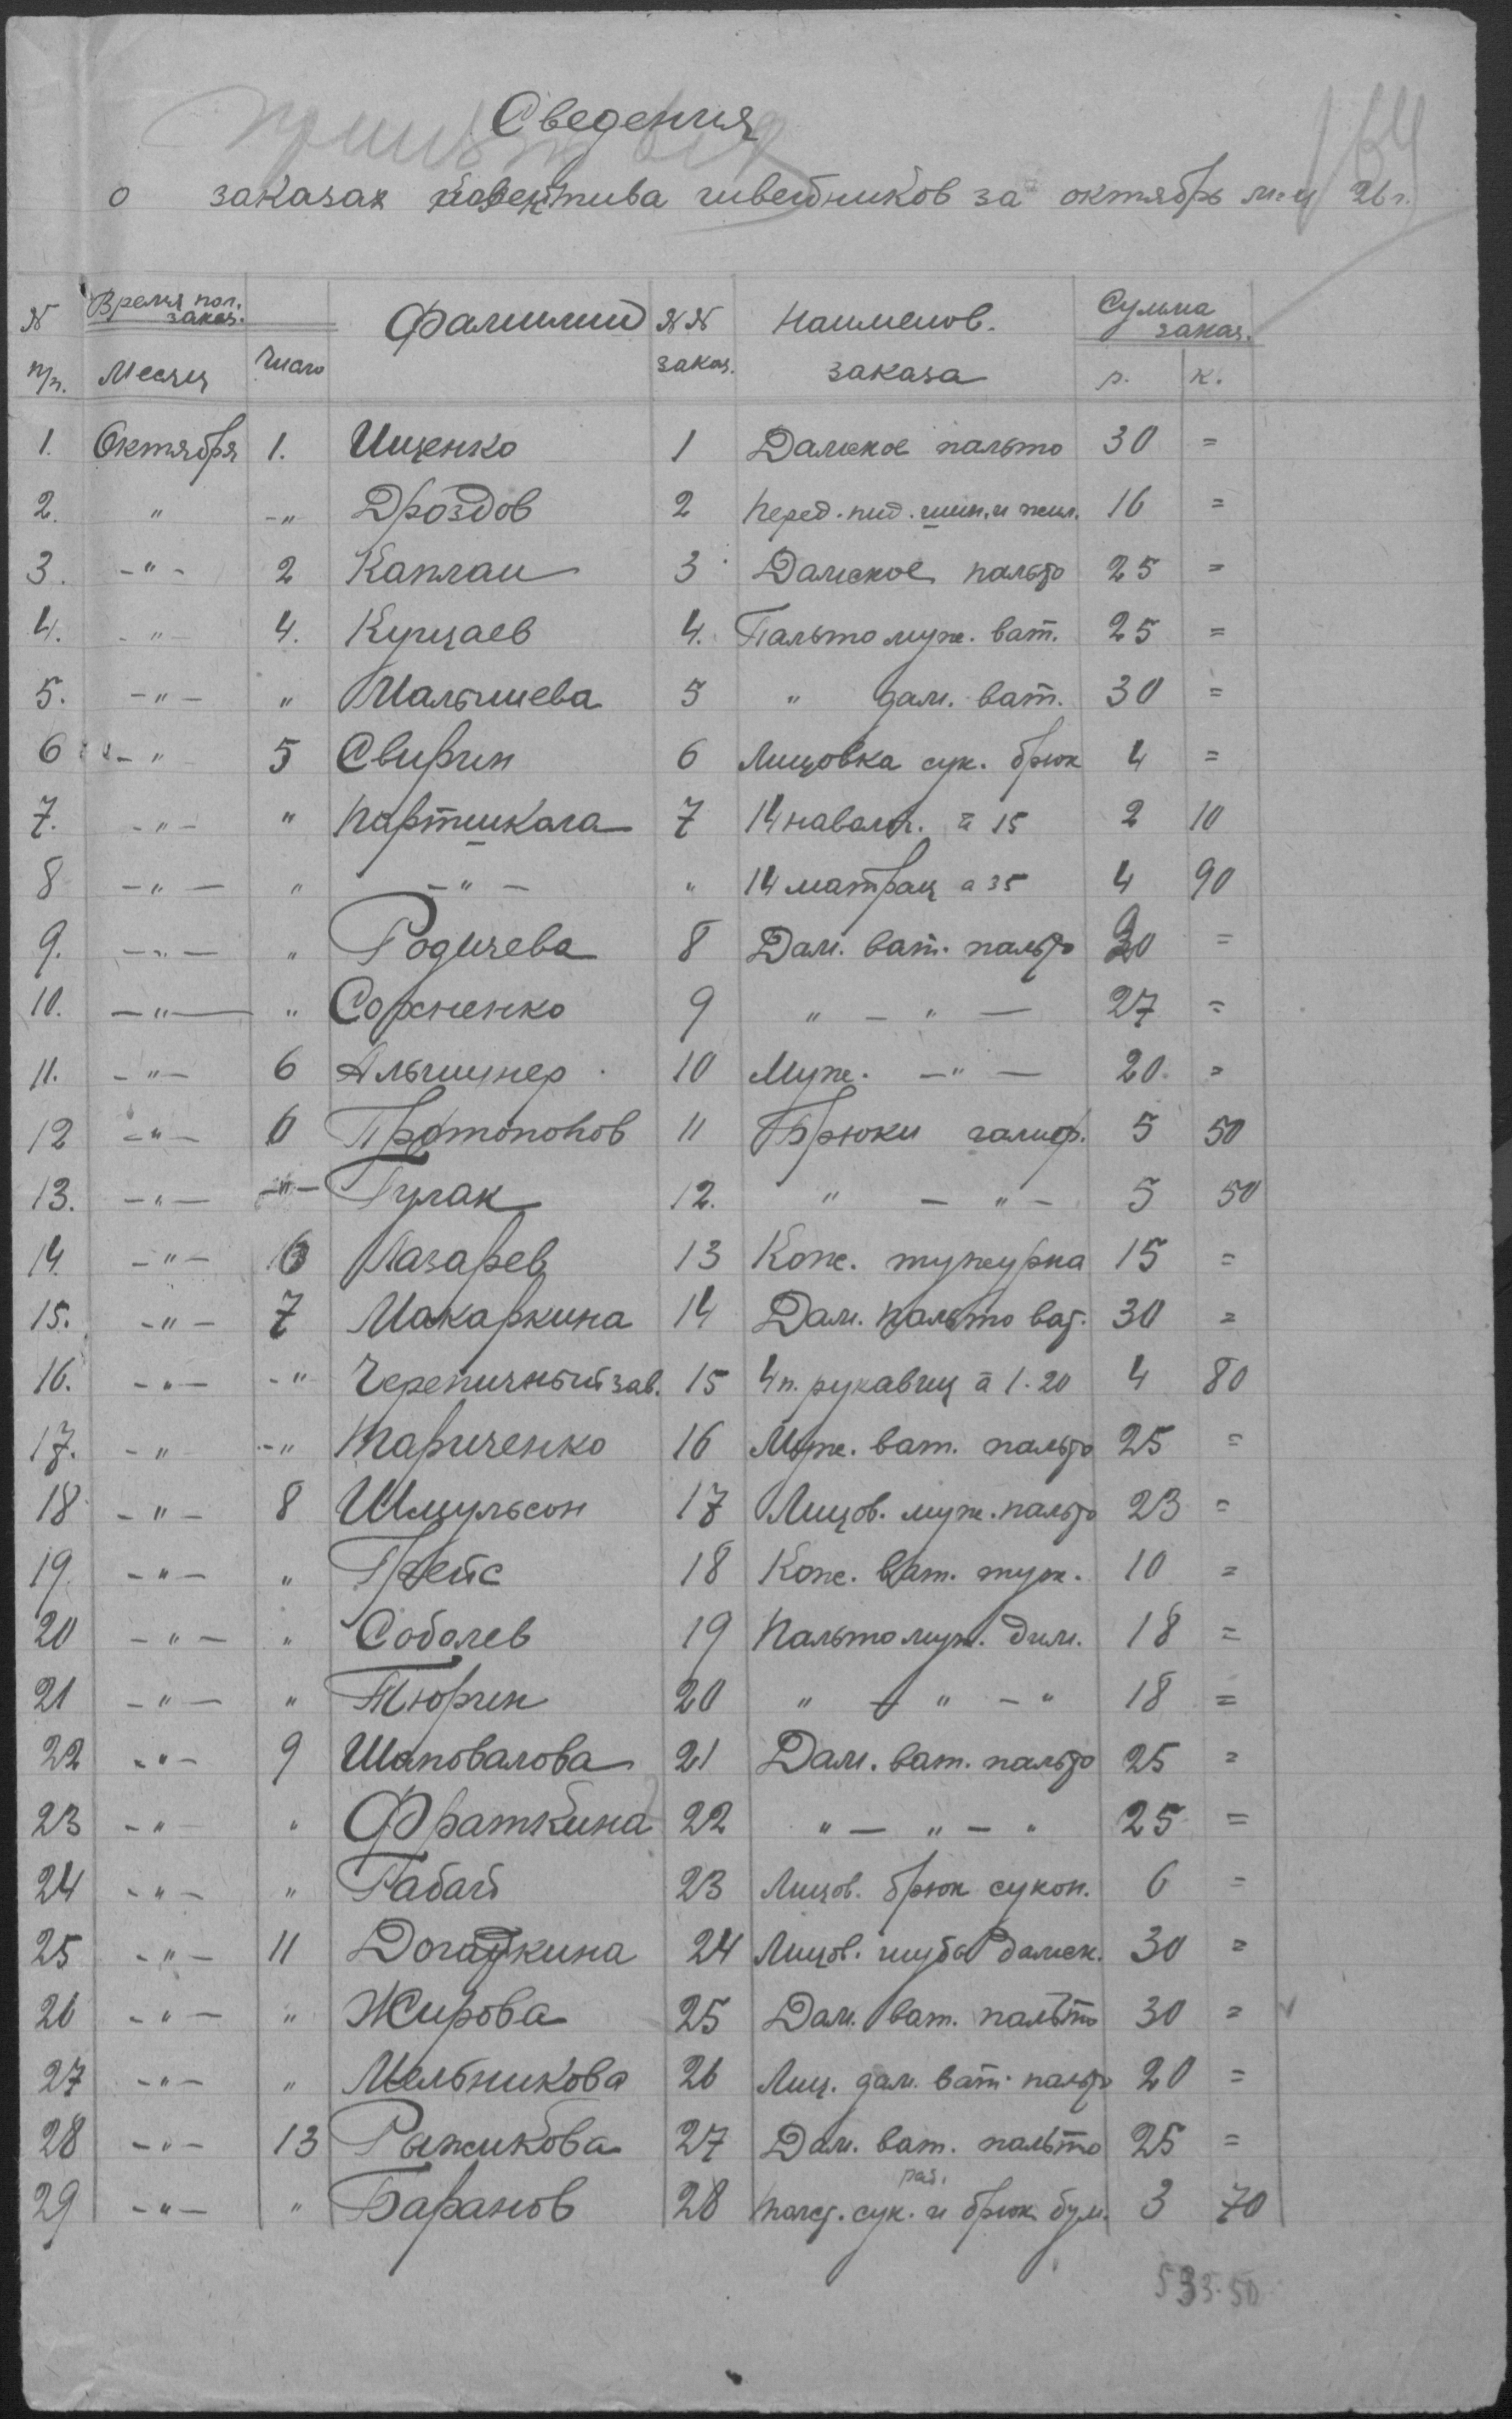 Сведения
о заказах коллектива швейников за октябрь м-ц 26 г.
164
№ п/п. Время пол. заказ. Месяц Число Фамилии №№ заказ. Наименов. заказа Сумма заказ. р. к.
1. Октября 1. Ищенко 1 Дамское пальто 30 =
2. " -" Дроздов 2 Перед. пид. шин. и жил. 16 =
3. -"- 2 Каплан 3 Дамское пальто 25 =
4. -"- 4. Купцаев 4. Пальто муж. ват. 25 =
5. -"- " Малышева 5 " дам. ват. 30 =
6 -" 5 Свирин 6 Лицовка сук. брюк 4 =
7. -"- " Партшкола 7 14 наволоч. а 15 2 10
8 -"- " -"- " 14 матрац а 35 4 90
9. -"- " Родичева 8 Дам. ват. пальто 30 =
10. -"- " Сохненко 9 " - " - 27 =
11. -"- 6 Альшулер 10 Муж. -"- 20 =
12 -"- 6 Протопопов 11 Брюки галиф. 5 50
13. -"- -"- Гулак 12. " - "- 5 50
14. -"- 6 Лазарев 13 Кож. тужурка 15 =
15. -"- 7 Макаркина 14 Дам. пальто ват. 30 =
16. -"- -" Черепичный зав. 15 4 п. рукавиц а 1.20 4 80
17. -" -" Тариченко 16 Муж. ват. пальто 25 =
18 -"- 8 Шмульсон 17 Лицов. муж. пальто 23 =
19. -"- " Грейс 18 Кож. ват. туж. 10 =
20 -"- " Соболев 19 Пальто муж. дим. 18 =
21 -"- " Тюрин 20 " - " - " 18 =
22 -"- 9 Шаповалова 21 Дам. ват. пальто 25 =
23 -"- " Фраткина 22 " - " - " 25 =
24 -"- " Рабай 23 Лицов. брюк сукон. 6 =
25 -"- 11 Догадкина 24 Лицов. шубы дамск. 30 =
26 -"- " Жирова 25 Дам. ват. пальто 30 =
27 -"- " Мельникова 26 Лиц. дам. ват. пальто 20 =
28 -"- 13 Рыжикова 27 Дам. ват. пальто 25 =
29 -"- " Баранов 28 толст. сук. и брюк бум. 3 70
533.50